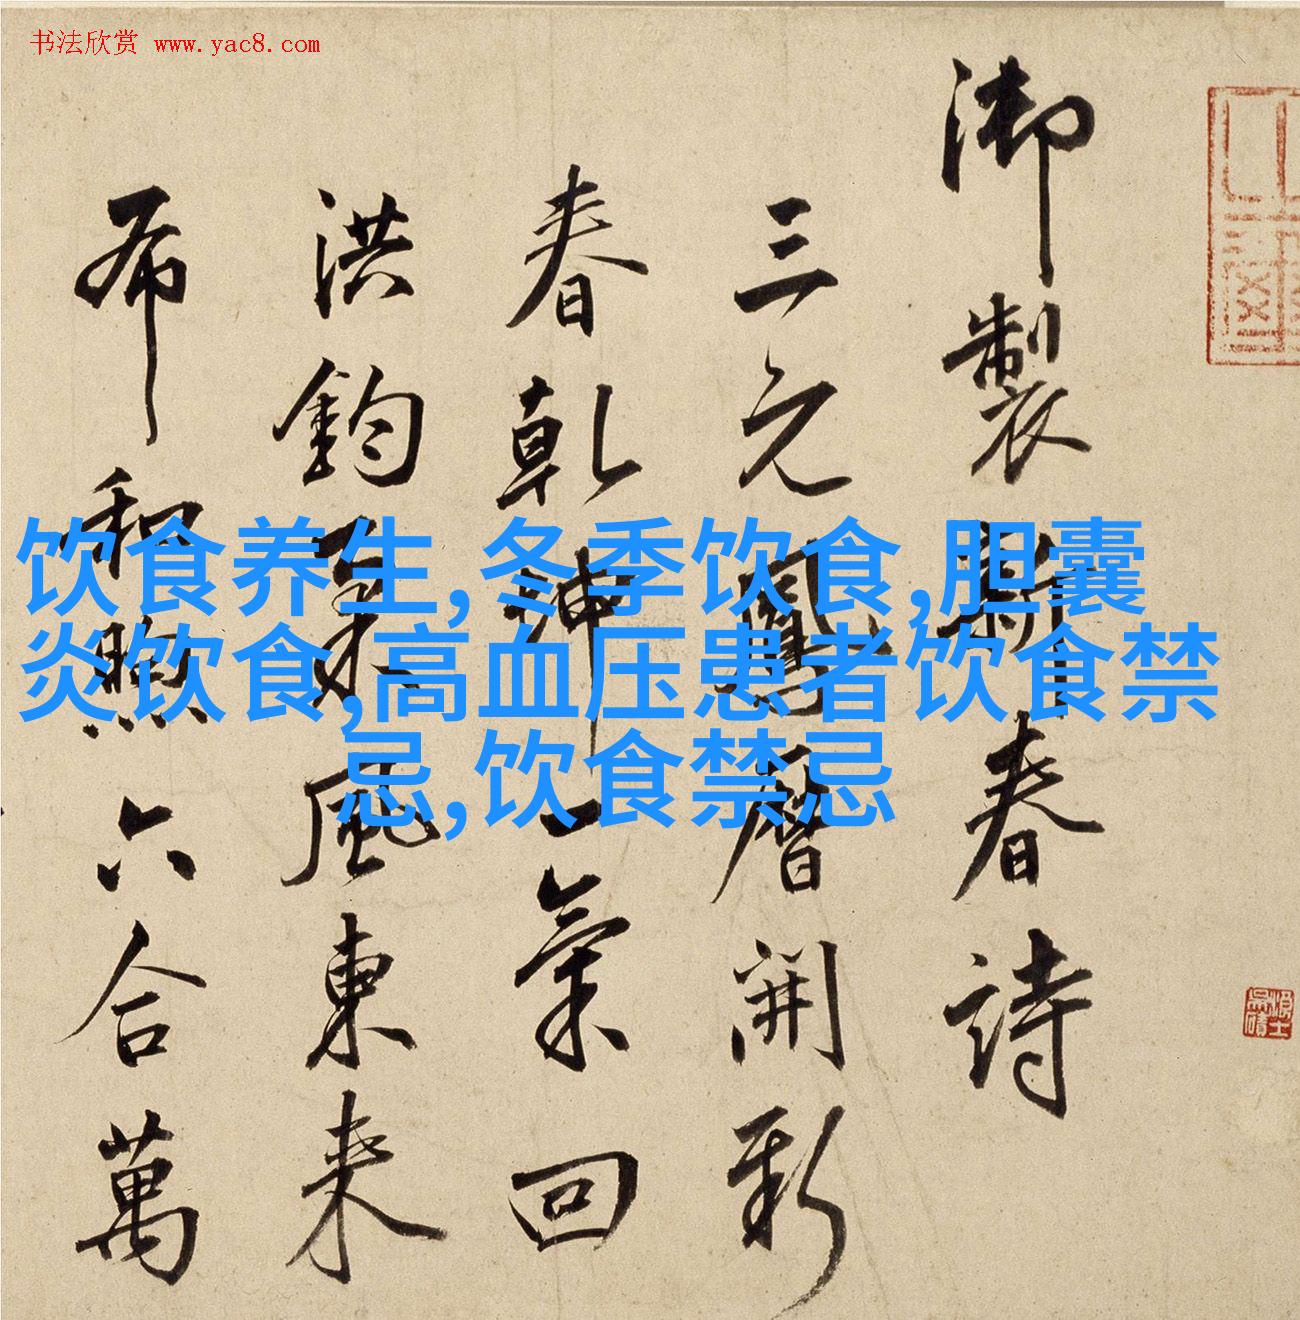 书法欣赏 www.yac8.com
御製新春詩
三元鳳曆開新
春乾坤一氣回
洪鈞風東来
布和煦六合萬
饮食养生,冬季饮食,胆囊
炎饮食,高血压患者饮食禁
忌,饮食禁忌